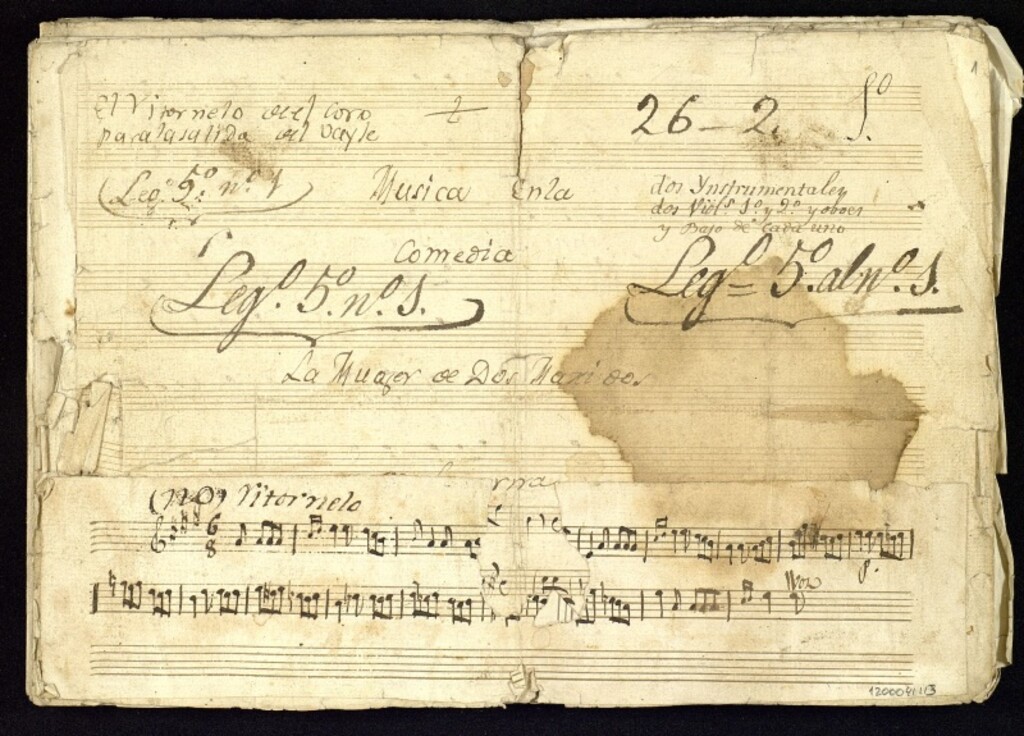 1
El Ritornelo del Coro
para la salida del Bayle
26-2.
Legº. 5º. nº. 1
Musica Enla
dos Ynstrumentales
dos Violˢ 1º y 2º y oboes
y Bajo de Cada uno
Comedia
Legº. 5º. nº. 1.
Legº= 5º. al nº. 1.
La Muger de Dos Maridos
(no) Ritornelo
6
8
p.
Voz
1200041113